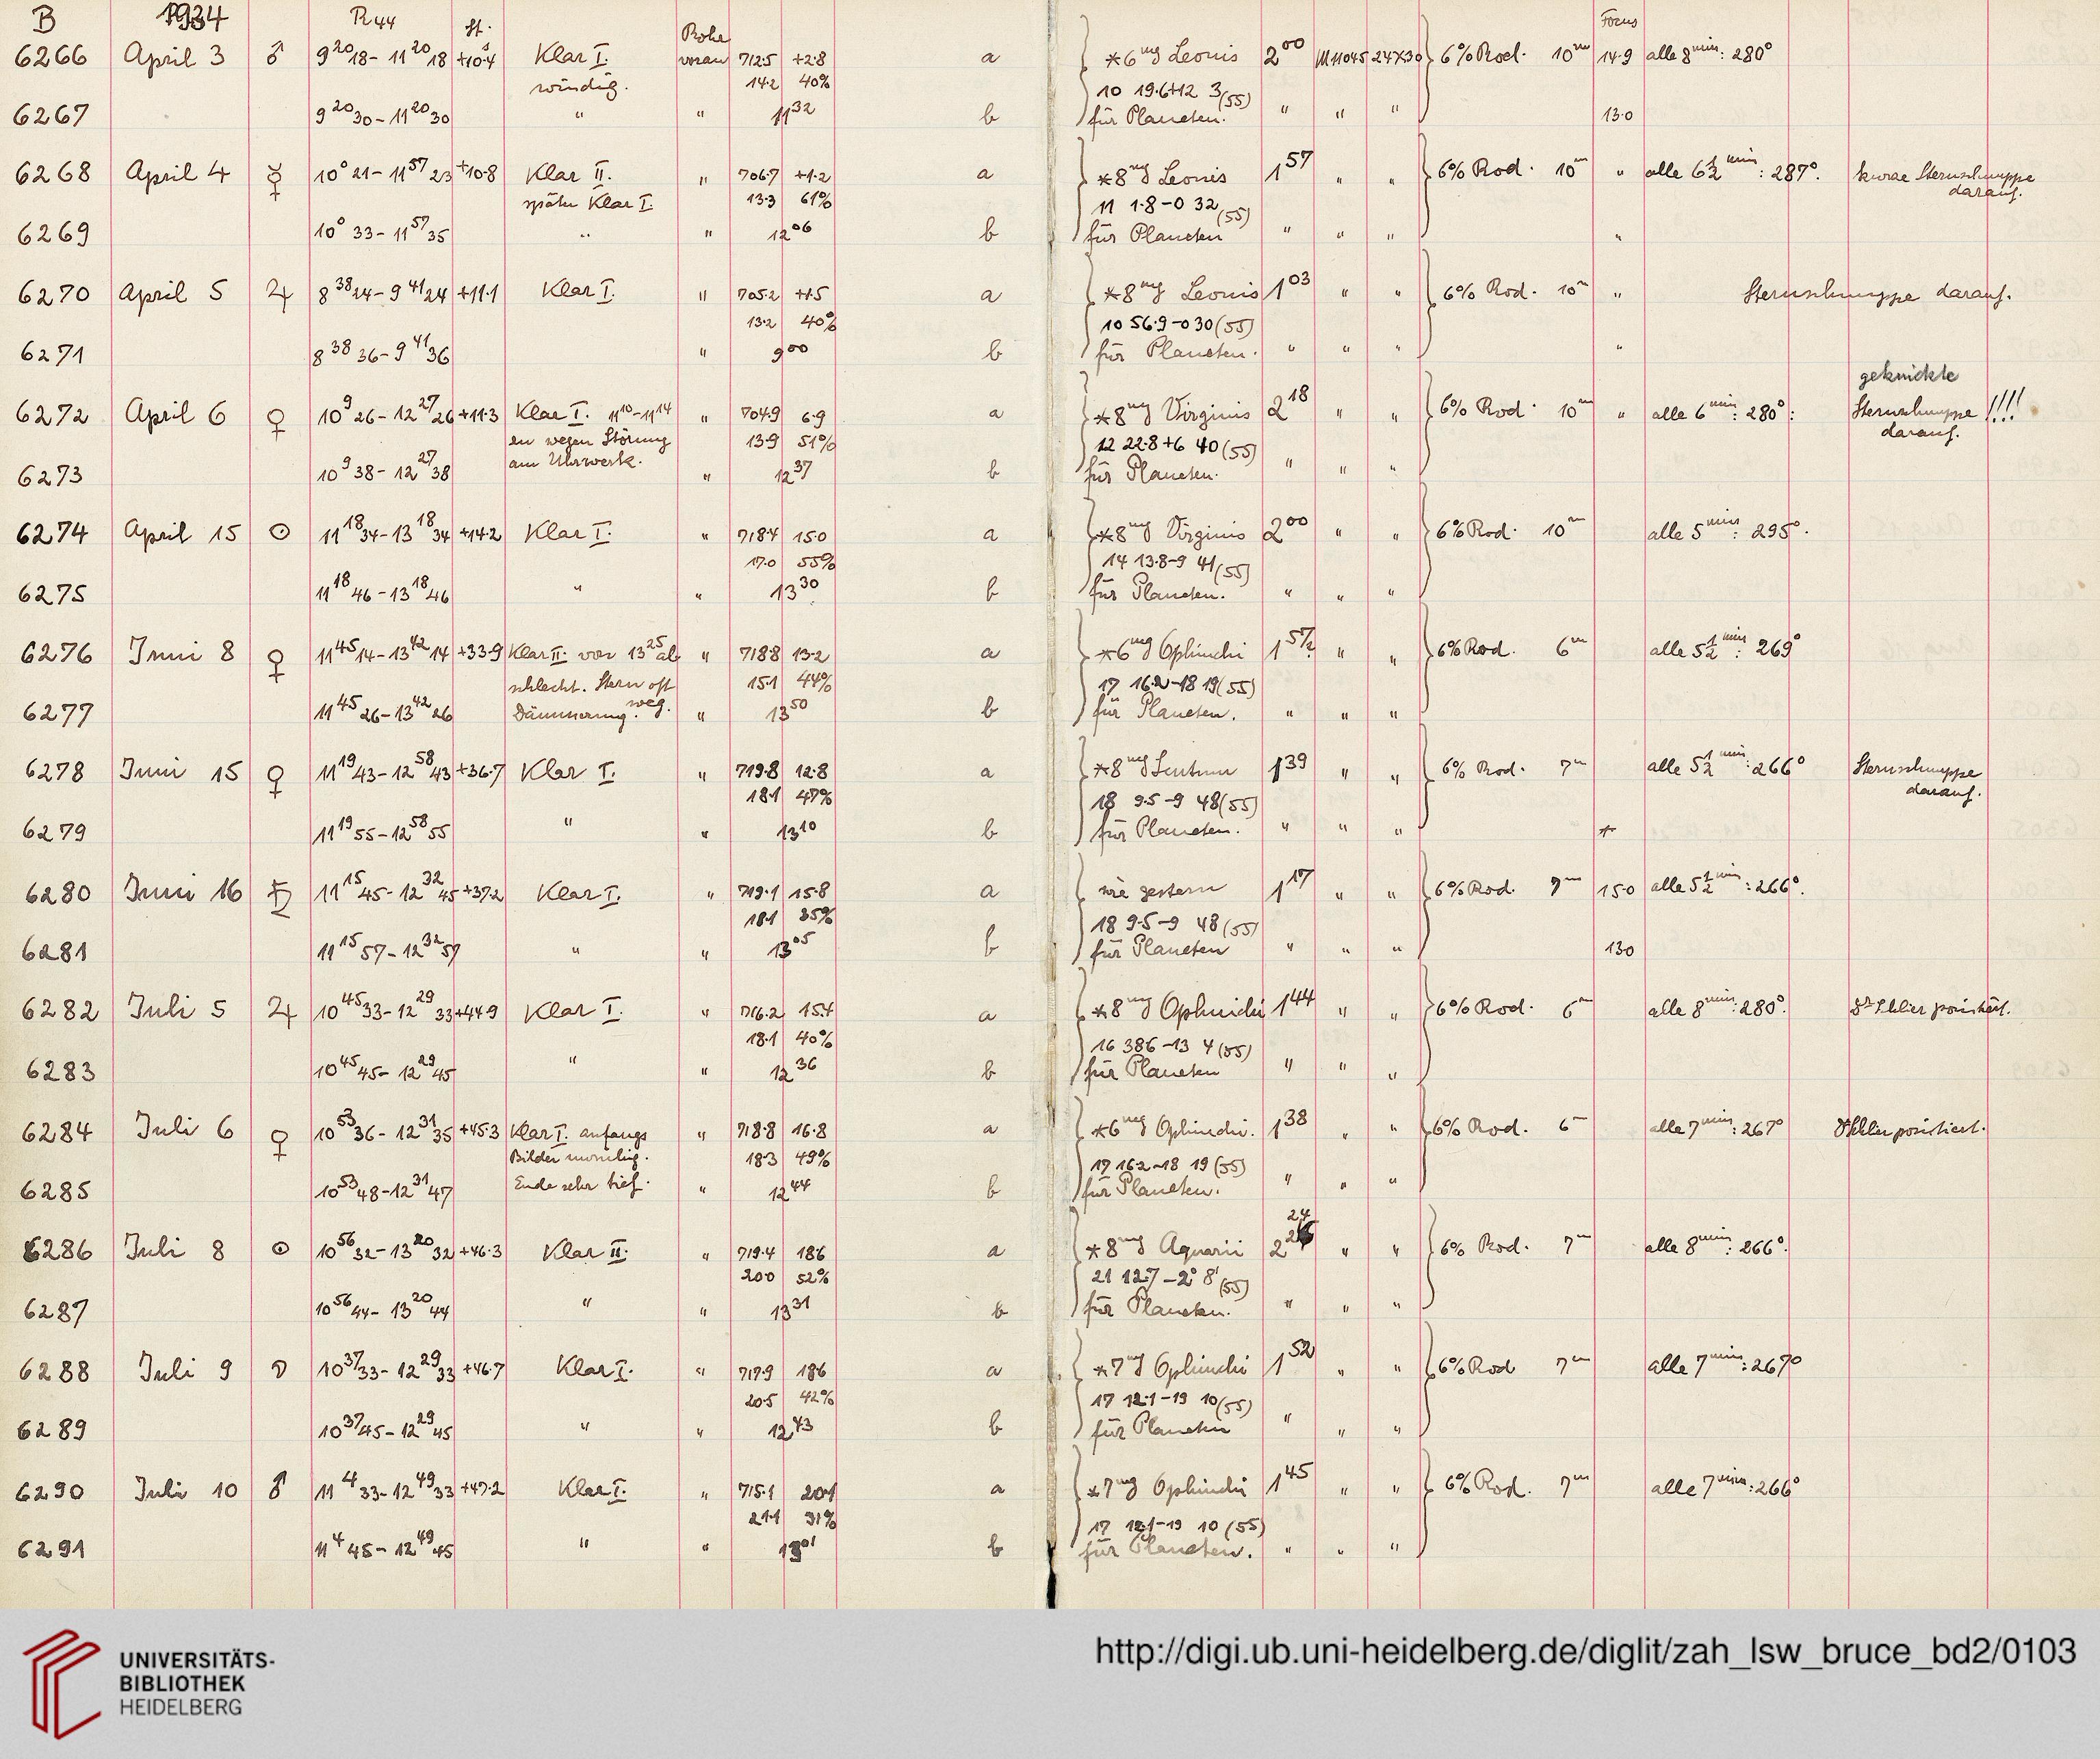 B 1934 R44 St. Rohr Focus
6266 April 3 ♂ 9 20 18 - 11 20 18 +10.4 Klar I. voran 712.5 +2.8 a *6 mg Leonis 2 00 M11045 24x30 6% Rod. 10 m 14.9 alle 8 min: 280°
windig. 14.2 40% 10 19.6+12 3 (55)
6267 9 20 30 - 11 20 30 " " 11 32 b für Planeten. " " " 13.0
6268 April 4 ☿ 10 0 21 - 11 57 23 +10.8 Klar II. " 706.7 +1.2 a *8 mg Leonis 1 57 " " 6% Rod. 10 m " alle 6 1/2 min: 287°. kurze Sternschnuppe
später Klar I. 13.3 61% 11 1.8-0 32 (55) darauf.
6269 10 0 33 - 11 57 35 " " 12 06 b für Planeten " " " "
6270 April 5 ♃ 8 38 24 - 9 41 24 +11.1 Klar I. " 705.2 +1.5 a *8 mg Leonis 1 03 " " 6% Rod. 10 m " Sternschnuppe darauf.
13.2 40% 10 56.9-0 30 (55)
6271 8 38 36 - 9 41 36 " 9 00 b für Planeten. " " " "
geknickte
6272 April 6 ♀ 10 9 26 - 12 27 26 +11.3 Klar I. 11 10 - 11 14 " 704.9 6.9 a *8 mg Virginis 2 18 " " 6% Rod. 10 m " alle 6 min: 280°: Sternschnuppe !!!!
zu wegen Störung 13.9 51% 12 22.8+6 40 (55) darauf.
am Uhrwerk.
6273 10 9 38 - 12 27 38 " 12 37 b für Planeten. " " "
6274 April 15 ⊙ 11 18 34 - 13 18 34 +14.2 Klar I. " 718.4 15.0 a *8 mg Virginis 2 00 " " 6% Rod. 10 m alle 5 min: 295°.
17.0 55% 14 13.8-9 41 (55)
6275 11 18 46 - 13 18 46 " " 13 30 b für Planeten. " " "
6276 Juni 8 ♀ 11 45 14 - 13 42 14 +33.9 Klar II. von 13 25 ab " 718.8 13.2 a *6 mg Ophiuchi 1 57 " " 6% Rod. 6 m alle 5 1/2 min: 269°
schlecht. Stern oft weg. 15.1 44% 17 16.2-18 19 (55)
6277 11 45 26 - 13 42 26 Dämmerung. " 13 50 b für Planeten. " " "
6278 Juni 15 ♀ 11 19 43 - 12 58 43 +36.7 Klar I. " 719.8 12.8 a *8 mg Scutum 1 39 " " 6% Rod. 7 m alle 5 1/2 min: 266° Sternschnuppe
18.1 47% 18 9.5-9 48 (55) darauf.
6279 11 19 55 - 12 58 55 " " 13 10 b für Planeten. " " "
6280 Juni 16 ♄ 11 15 45 - 12 32 45 +37.2 Klar I. " 719.1 15.8 a wie gestern 1 17 " " 6% Rod. 7 m 15.0 alle 5 1/2 min: 266°.
18.1 35% 18 9.5-9 48 (55)
6281 11 15 57 - 12 32 57 " " 13 05 b für Planeten " " " 13.0
6282 Juli 5 ♃ 10 45 33 - 12 29 33 +44.9 Klar I. " 716.2 15.4 a *8 mg Ophiuchi 1 44 " " 6% Rod. 6 m alle 8 min: 280°.
18.1 40% 16 38.6-13 4 (55)
6283 10 45 45 - 12 29 45 " " 12 36 b für Planeten " " "
6284 Juli 6 ♀ 10 53 36 - 12 31 35 +45.3 Klar I. anfangs " 718.8 16.8 a *6 mg Ophiuchi. 1 38 " " 6% Rod. 6 m alle 7 min: 267°
Bilder unruhig. 18.3 49% 17 16.2-18 19 (55)
6285 10 53 48 - 12 31 47 Ende sehr tief. " 12 44 b für Planeten. " " "
24
6286 Juli 8 ⊙ 10 56 32 - 13 20 32 +46.3 Klar II. " 719.4 18.6 a *8 mg Aquarii 2 " " 6% Rod. 7 m alle 8 min: 266°.
20.0 52% 21 12.7-2° 8' (55)
6287 10 56 44 - 13 20 44 " " 13 31 b für Planeten. " " "
6288 Juli 9 ☽ 10 37 33 - 12 29 33 +46.7 Klar I. " 717.9 18.6 a *7 mg Ophiuchi 1 52 " " 6% Rod 7 m alle 7 min: 267°
20.5 42% 17 12.1-19 10 (55)
6289 10 37 45 - 12 29 45 " " 12 43 b für Planeten " " "
6290 Juli 10 ♂ 11 4 33 - 12 49 33 +47.2 Klar I. " 715.1 20.1 a *7 mg Ophiuchi 1 45 " " 6% Rod. 7 m alle 7 min: 266°
21.1 31% 17 12.1-19 10 (55)
6291 11 4 45 - 12 49 45 " " 13 01 b für Planeten. " " "
UNIVERSITÄTS-
BIBLIOTHEK
HEIDELBERG
http://digi.ub.uni-heidelberg.de/diglit/zah_lsw_bruce_bd2/0103